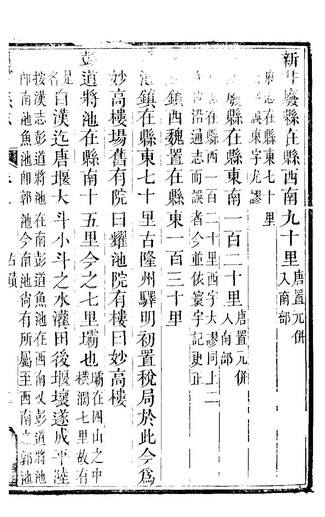 新井廢縣在縣西南九十里唐置元併入南部
府志在縣東七十里
誤東字尤謬
廢縣在縣東南一百二十里唐置元併入南部
志在縣西一百二十里西字大謬同上二
沿通志而誤者今並依寰宇記更正
鎮西魏置在縣東一百三十里
池鎮在縣東七十里古隆州驛明初置稅局於此今為
妙高樓場舊有院曰耀池院有樓曰妙高樓
彭道將池在縣南十五里今之七里壩也壩在四山之中橫濶七里故有
是名
自漢迄唐堰大斗小斗之水灌田後堰壞遂成平陸
按漢志彭道將池在南彭道魚池在西南又彭道將池
即南池魚池即郭池今南池尚有所屬至西南之郭池